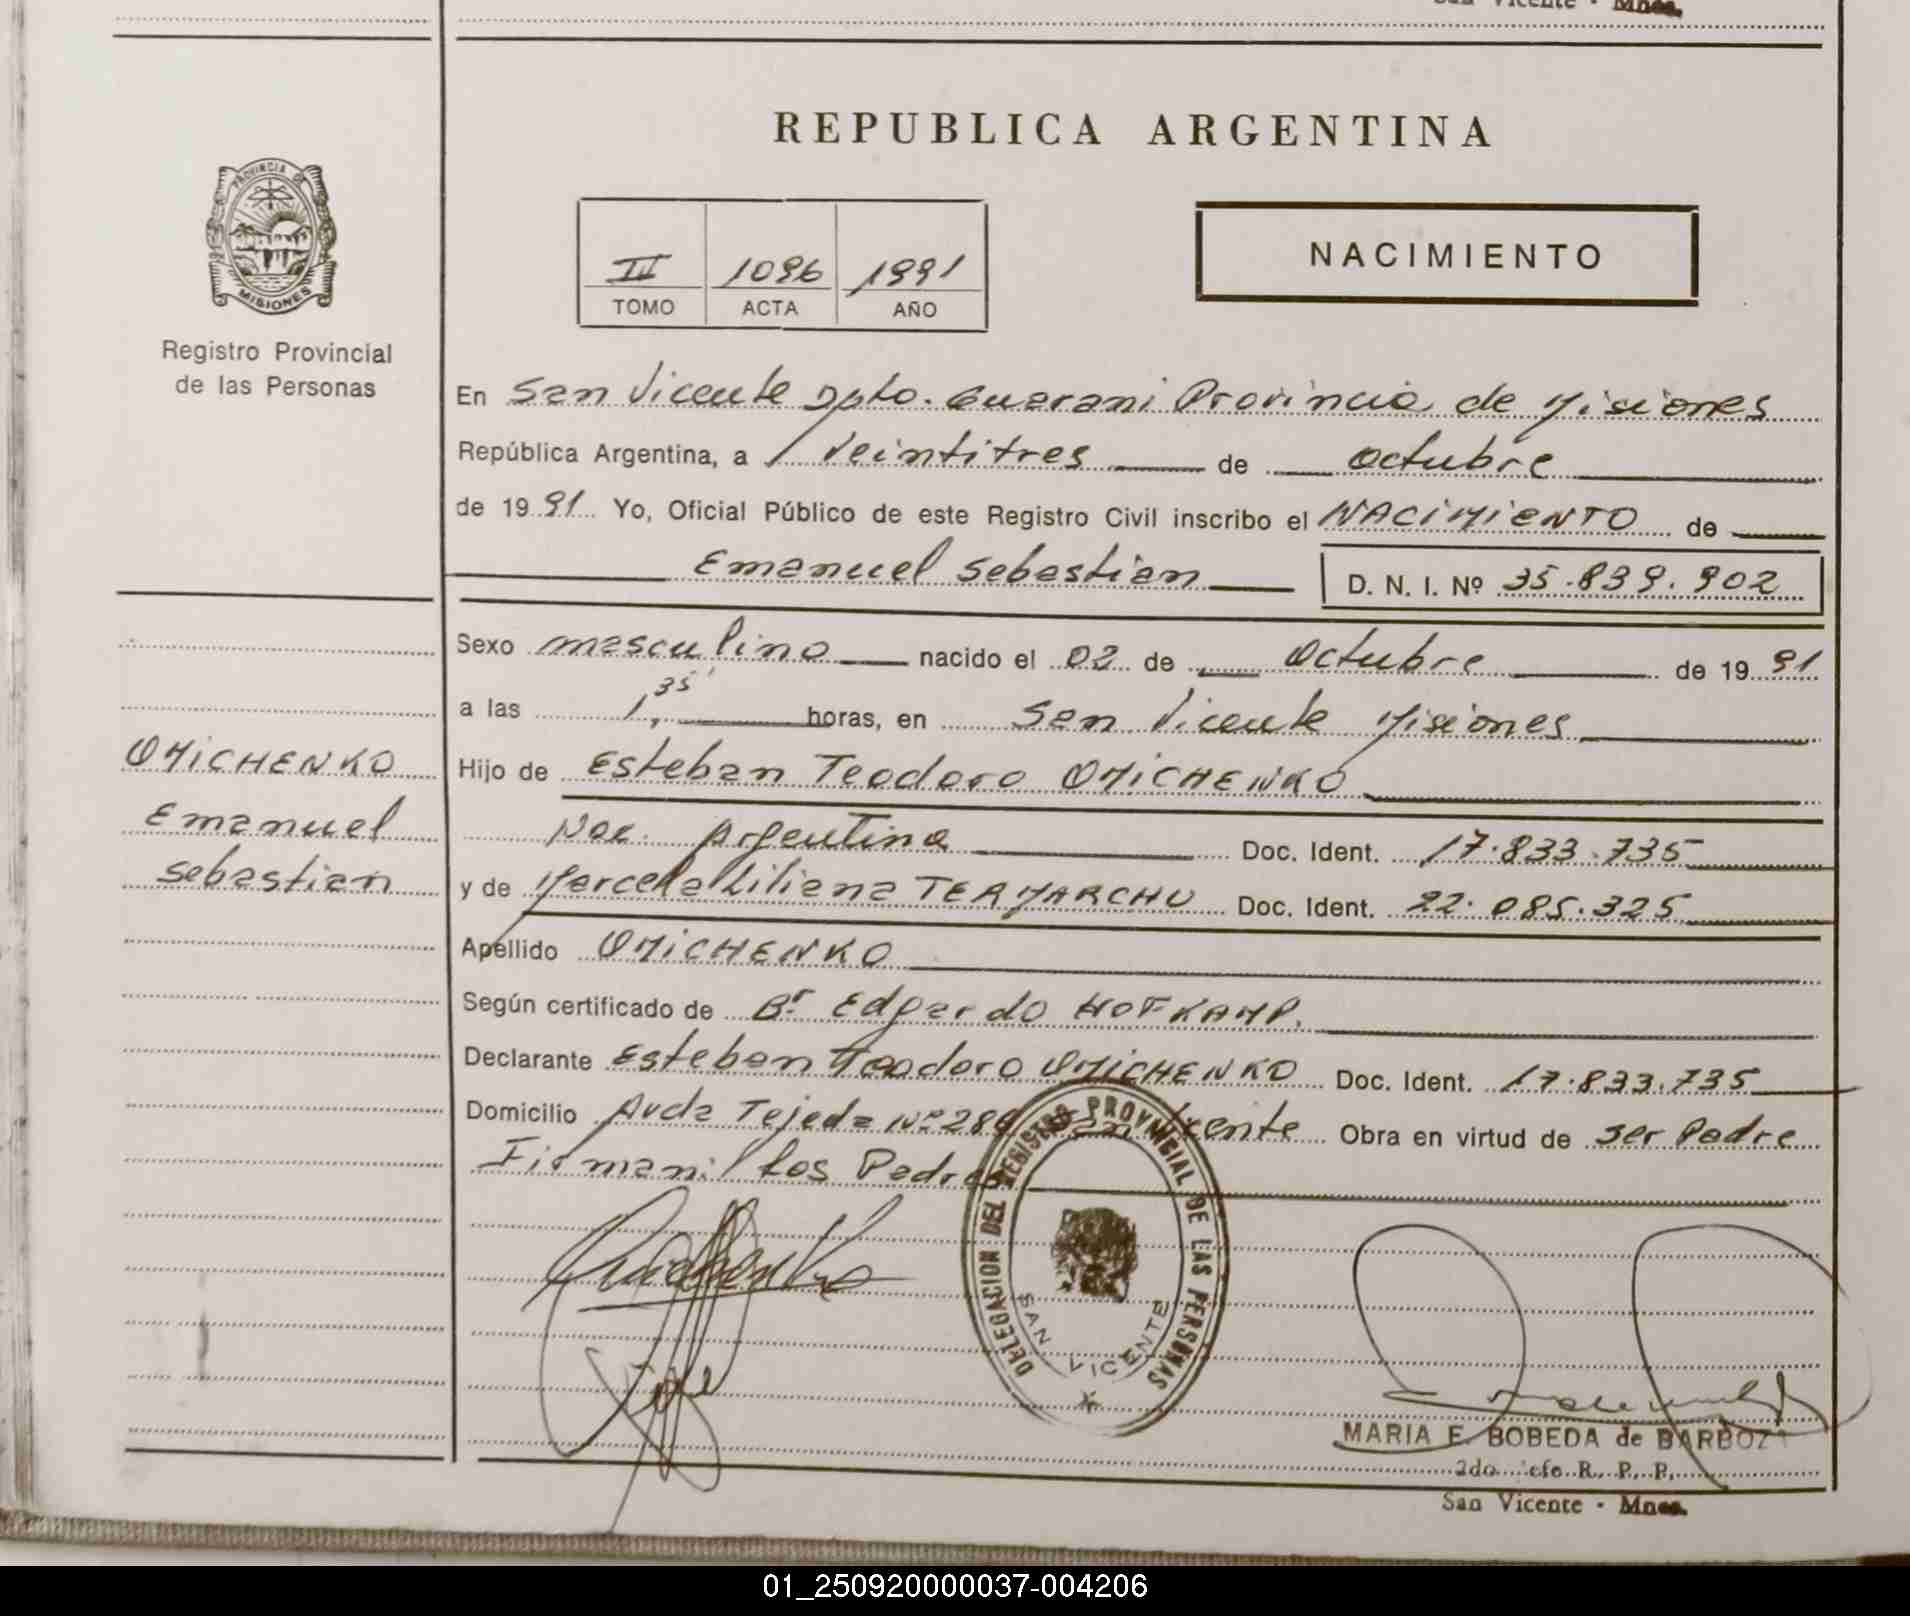 San Vicente - Mnes.
REPUBLICA ARGENTINA
PROVINCIA DE
MISIONES
Registro Provincial
de las Personas
III 1096 1991
TOMO ACTA AÑO
NACIMIENTO
En San Vicente Dpto. Guarani Provincia de Misiones
República Argentina, a veintitres de octubre
de 1991 Yo, Oficial Público de este Registro Civil inscribo el NACIMIENTO de
Emanuel Sebastian D. N. I. Nº 35.839.902
Sexo masculino nacido el 02 de octubre de 1991
a las 1,35 horas, en San Vicente Misiones
OMICHENKO
Emanuel
Sebastian
Hijo de Esteban Teodoro OMICHENKO
Nac. Argentina Doc. Ident. 17.833.735
y de Marcela Liliana TERMARCHU Doc. Ident. 22.085.325
Apellido OMICHENKO
Según certificado de Br Edgardo HOFKAMP.
Declarante Esteban Teodoro OMICHENKO Doc. Ident. 17.833.735
Domicilio Avda Tejeda Nº San Vicente Obra en virtud de ser Padre
Firman los Padres
DELEGACION DEL REGISTRO PROVINCIAL DE LAS PERSONAS
SAN VICENTE
MARIA E. BOBEDA de BARBOZA
2do. Jefe R. P. P.
San Vicente - Mnes.
01_250920000037-004206